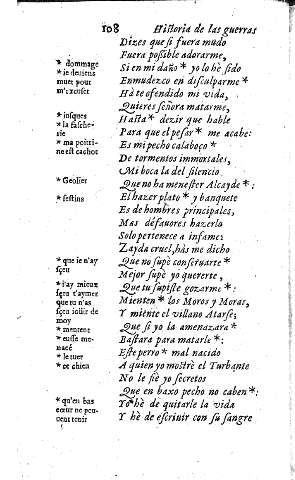 108 Historia de las guerras
Dizes que si fuera mudo
Fuera possible adorarme,
* dommage
Si en mi daño * yo lo hè sido
* ie deuiens
muet pour
m'excuser
Enmudezco en disculparme *
Hà te ofendido mi vida,
Quieres señora matarme,
* iusques
Hasta * dezir que hable
* la fasche-
rie
Para que el pesar * me acabe:
* ma poitri-
ne est cachot
Es mi pecho calaboço *
De tormentos immortales,
Mi boca la del silencio
* Geolier
Que no ha menester Alcayde *:
* festins
El hazer plato * y banquete
Es de hombres principales,
Mas de fauores hazerlo
Solo pertenece a infame:
Zayda cruel, hàs me dicho
* que ie n'ay
sçeu
Que no supè conseruarte *
Mejor supè yo quererte,
* i'ay mieux
sçeu t'aymer
que tu n'as
sçeu iouïr de
moy
Que tu supiste gozarme *:
* mentent
Mienten * los Moros y Moras,
Y miente el villano Atarfe;
* eusse me-
nacé
Que si yo la amenazara *
* le tuer
Bastara para matarle *:
* ce chien
Este perro * mal nacido
A quien yo mostrè el Turbante
No le fiè yo secretos
* qu'en bas
cœur ne peu-
uent tenir
Que en baxo pecho no caben *:
Yo hè de quitarle la vida
Y hè de escriuir con su sangre